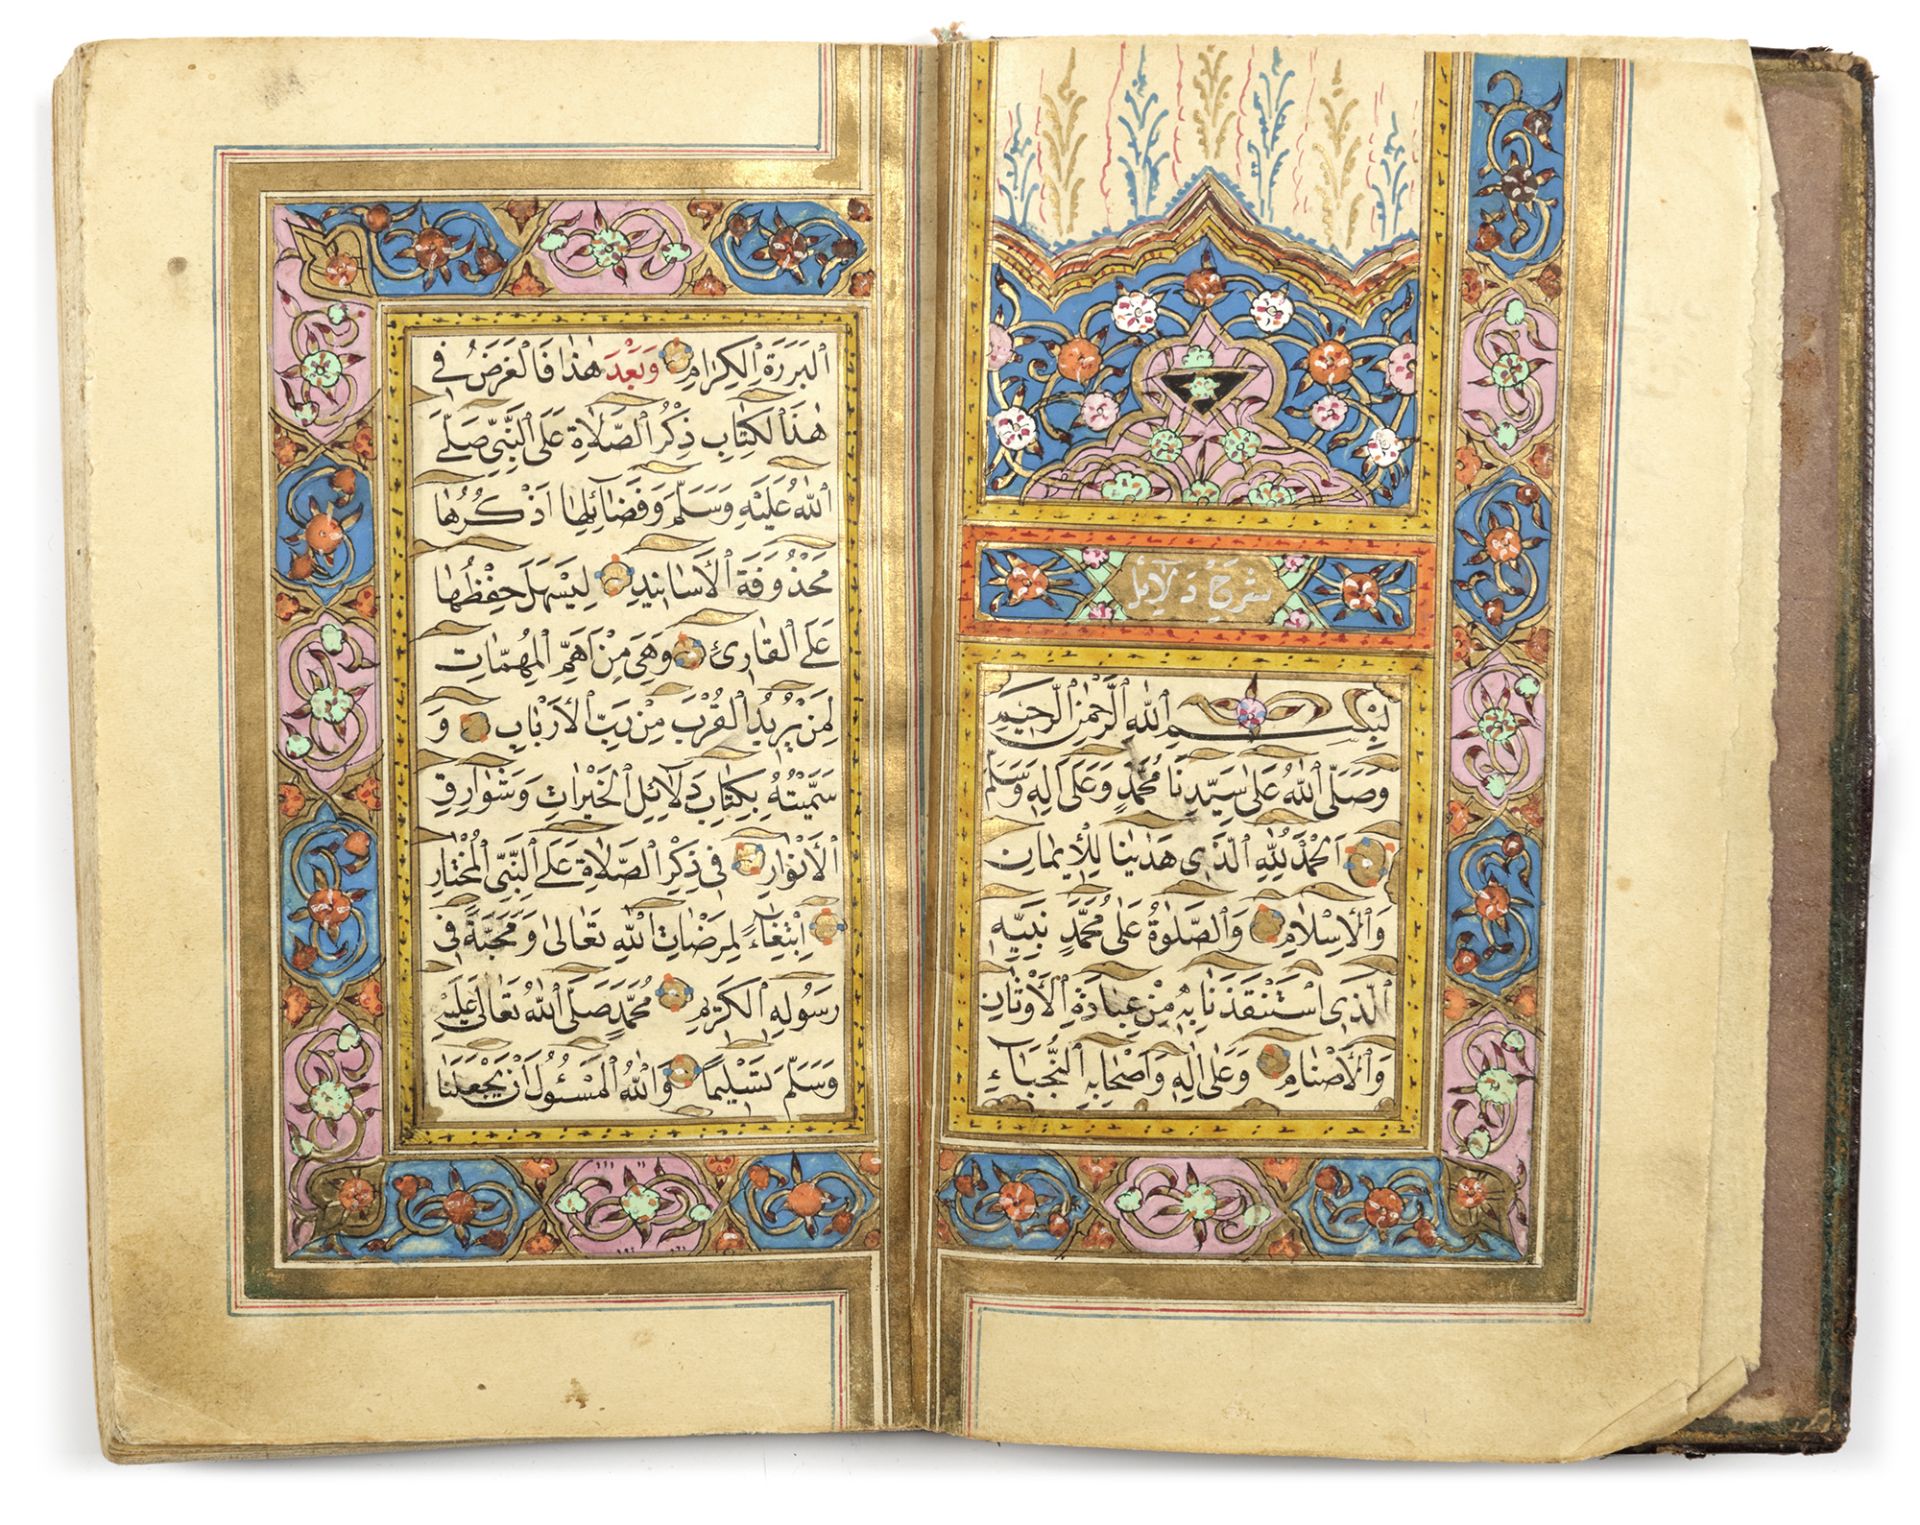 شرح دلائل
بِسْمِ اللهِ الرَّحْمٰنِ الرَّحِيمِ
وَصَلَّى اللهُ عَلٰى سَيِّدِنَا مُحَمَّدٍ وَعَلٰى اٰلِهِ وَسَلَّمَ
اَلْحَمْدُ لِلّٰهِ الَّذِى هَدٰينَا لِلْاِيمَانِ
وَالْاِسْلَامِ وَالصَّلٰوةُ عَلٰى مُحَمَّدٍ نَبِيِّهِ
الَّذِى اسْتَنْقَذَنَا بِهِ مِنْ عِبَادَةِ الْاَوْثَانِ
وَالْاَصْنَامِ وَعَلٰى اٰلِهِ وَاَصْحَابِهِ النُّجَبَاءِ
الْبَرَرَةِ الْكِرَامِ وَبَعْدَ هٰذَا فَالْغَرَضُ فِى
هٰذَا الْكِتَابِ ذِكْرُ الصَّلَاةِ عَلَى النَّبِيِّ صَلَّى
اللهُ عَلَيْهِ وَسَلَّمَ وَفَضَائِلِهَا اَذْكُرُهَا
مَحْذُوفَةَ الْاَسَانِيدِ لِيَسْهَلَ حِفْظُهَا
عَلَى الْقَارِئِ وَهِىَ مِنْ اَهَمِّ الْمُهِمَّاتِ
لِمَنْ يُرِيدُ الْقُرْبَ مِنْ رَبِّ الْاَرْبَابِ وَ
سَمَّيْتُهُ بِكِتَابِ دَلَائِلِ الْخَيْرَاتِ وَشَوَارِقِ
الْاَنْوَارِ فِى ذِكْرِ الصَّلَاةِ عَلَى النَّبِيِّ الْمُخْتَارِ
اِبْتِغَاءً لِمَرْضَاتِ اللهِ تَعَالٰى وَمَحَبَّةً فِى
رَسُولِهِ الْكَرِيمِ مُحَمَّدٍ صَلَّى اللهُ تَعَالٰى عَلَيْهِ
وَسَلَّمَ تَسْلِيمًا وَاللهُ الْمَسْئُولُ اَنْ يَجْعَلَنَا